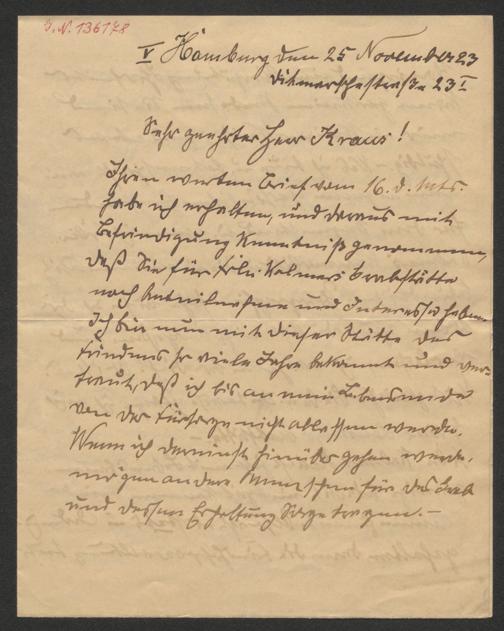 J. N. 136178
V Hamburg den 25 November 23
Ditmarschestraße 23 I
Sehr geehrter Herr Kraus!
Ihren werten Brief vom 16. d. Mts.
habe ich erhalten, und daraus mit
Befriedigung Kenntniß genommen,
daß Sie für Frln. Kalmars Grabstätte
noch Anteilnahme und Interesse haben.
Ich bin nun mit dieser Stätte des
Friedens so viele Jahre bekannt und ver-
traut, daß ich bis an mein Lebensende
von der Fürsorge nicht ablassen werde.
Wenn ich dereinst hinüber gehen werde,
mögen andere Menschen für das Grab
und dessen Erhaltung Sorge tragen. —